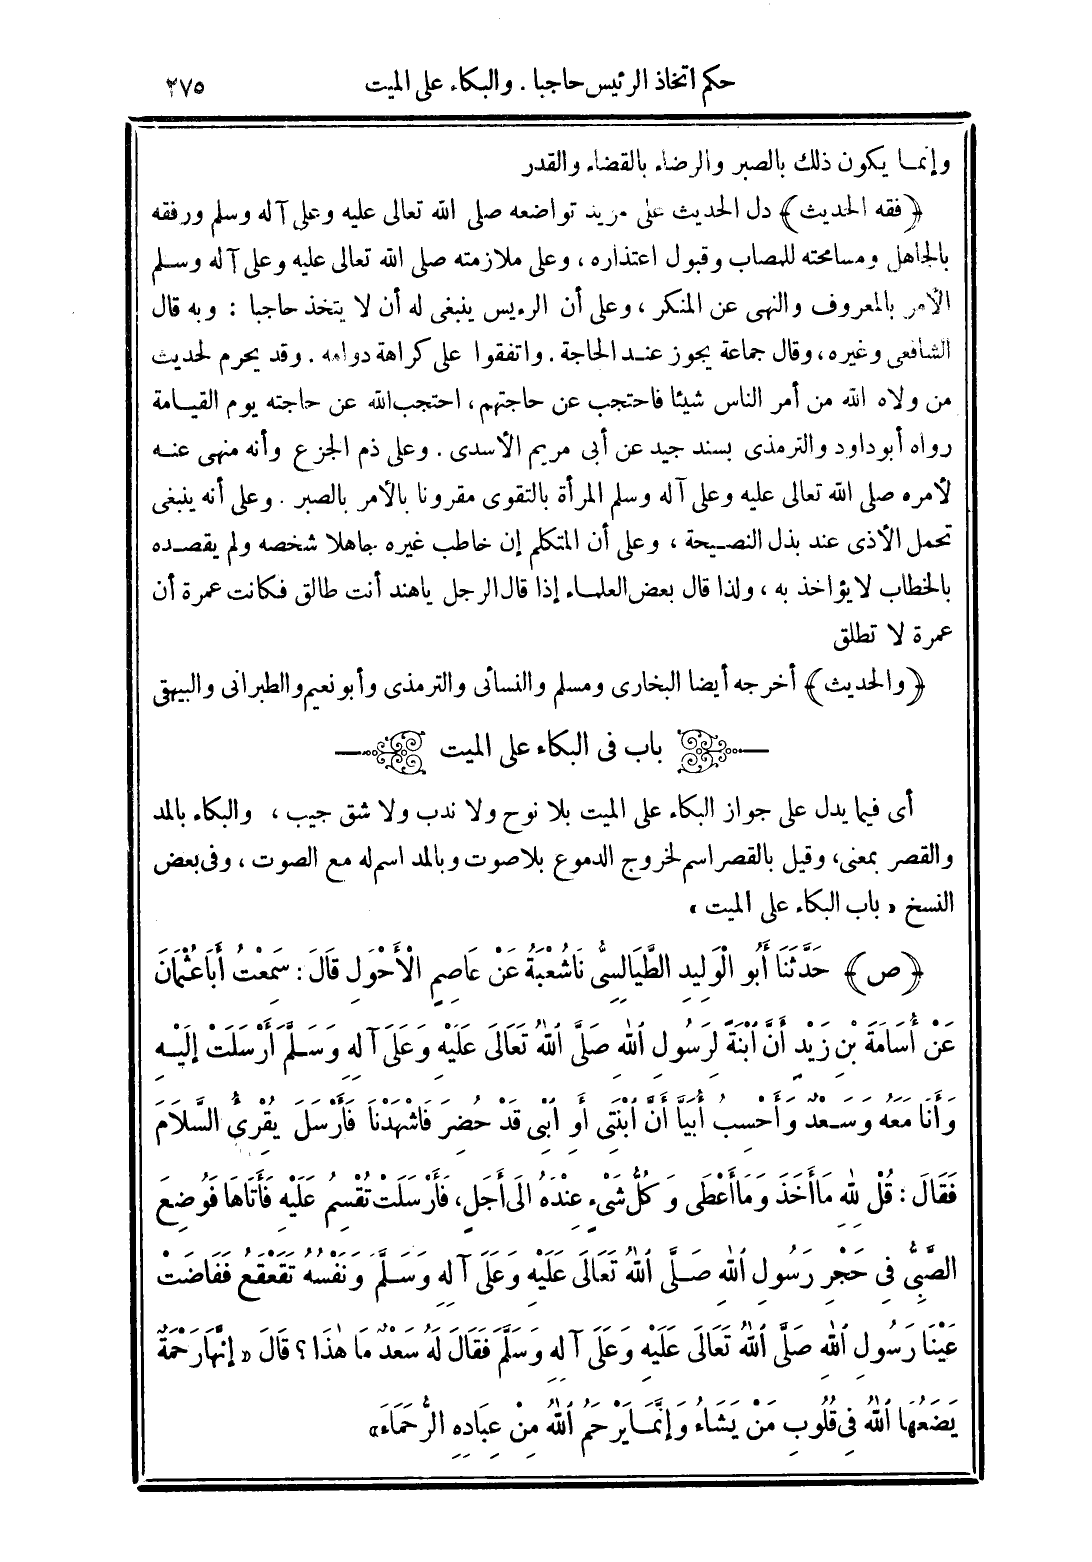 حكم اتخاذ الرئيس حاجبا . والبكاء على الميت ٢٧٥
وإنمـا يكون ذلك بالصبر والرضاء بالقضاء والقدر
﴿فقه الحديث﴾ دل الحديث على مزيد تواضعه صلى الله تعالى عليه وعلى آله وسلم ورفقه
بالجاهل ومسامحته للمصاب وقبول اعتذاره ، وعلى ملازمته صلى الله تعالى عليه وعلى آله وسـلم
الأمر بالمعروف والنهى عن المنكر ، وعلى أن الرئيس ينبغى له أن لا يتخذ حاجبا : وبه قال
الشافعى وغيره ، وقال جماعة يجوز عنـد الحاجة . واتفقوا على كراهة دوامه . وقد يحرم لحديث
من ولاه الله من أمر الناس شيئا فاحتجب عن حاجتهم ، احتجب الله عن حاجته يوم القيـامة
رواه أبو داود والترمذى بسند جيد عن أبى مريم الأسدى . وعلى ذم الجزع وأنه منهى عنـه
لأمره صلى الله تعالى عليه وعلى آله وسلم المرأة بالتقوى مقرونا بالأمر بالصبر . وعلى أنه ينبغى
تحمل الأذى عند بذل النصـيحة ، وعلى أن المتكلم إن خاطب غيره جاهلا شخصه ولم يقصـده
بالخطاب لا يؤاخذ به ، ولذا قال بعض العلمـاء إذا قال الرجل ياهند أنت طالق فـكانت عمرة أن
عمرة لا تطلق
﴿والحديث﴾ أخرجه أيضا البخارى ومسلم والنسائى والترمذى وأبو نعيم والطبرانى والبيهقى
باب فى البكاء على الميت
أى فيما يدل على جواز البكاء على الميت بلا نوح ولا ندب ولا شق جيب ، والبكاء بالمد
والقصر بمعنى، وقيل بالقصر اسم لخروج الدموع بلا صوت وبالمد اسم له مع الصوت ، وفى بعض
النسخ « باب البكاء على الميت »
﴿ص﴾ حَدَّثَنَا أَبُو الْوَلِيدِ الطَّيَالِسِىُّ نَا شُعْبَةُ عَنْ عَاصِمٍ الْأَحْوَلِ قَالَ : سَمِعْتُ أَبَا عُثْمَانَ
عَنْ أُسَامَةَ بْنِ زَيْدٍ أَنَّ ابْنَةً لِرَسُولِ اللهِ صَلَّى اللهُ تَعَالَى عَلَيْهِ وَعَلَى آلِهِ وَسَلَّمَ أَرْسَلَتْ إِلَيْـهِ
وَأَنَا مَعَهُ وَسَـعْدٌ وَأَحْسِبُ أُبَيًّا أَنَّ ابْنَتِى أَوِ ابْنِى قَدْ حُضِرَ فَاشْهَدْنَا فَأَرْسَلَ يُقْرِئُ السَّلَامَ
فَقَالَ : قُلْ لِلهِ مَا أَخَذَ وَمَا أَعْطَى وَكُلُّ شَىْءٍ عِنْدَهُ إِلَى أَجَلٍ ، فَأَرْسَلَتْ تُقْسِمُ عَلَيْهِ فَأَتَاهَا فَوُضِعَ
الصَّبِىُّ فِى حَجْرِ رَسُولِ اللهِ صَـلَّى اللهُ تَعَالَى عَلَيْهِ وَعَلَى آلِهِ وَسَـلَّمَ وَنَفْسُهُ تَقَعْقَعُ فَفَاضَتْ
عَيْنَا رَسُولِ اللهِ صَلَّى اللهُ تَعَالَى عَلَيْهِ وَعَلَى آلِهِ وَسَلَّمَ فَقَالَ لَهُ سَعْدٌ مَا هٰذَا ؟ قَالَ « إِنَّهَا رَحْمَةٌ
يَضَعُهَا اللهُ فِى قُلُوبِ مَنْ يَشَاءُ وَإِنَّمَـا يَرْحَمُ اللهُ مِنْ عِبَادِهِ الرُّحَمَاءَ»